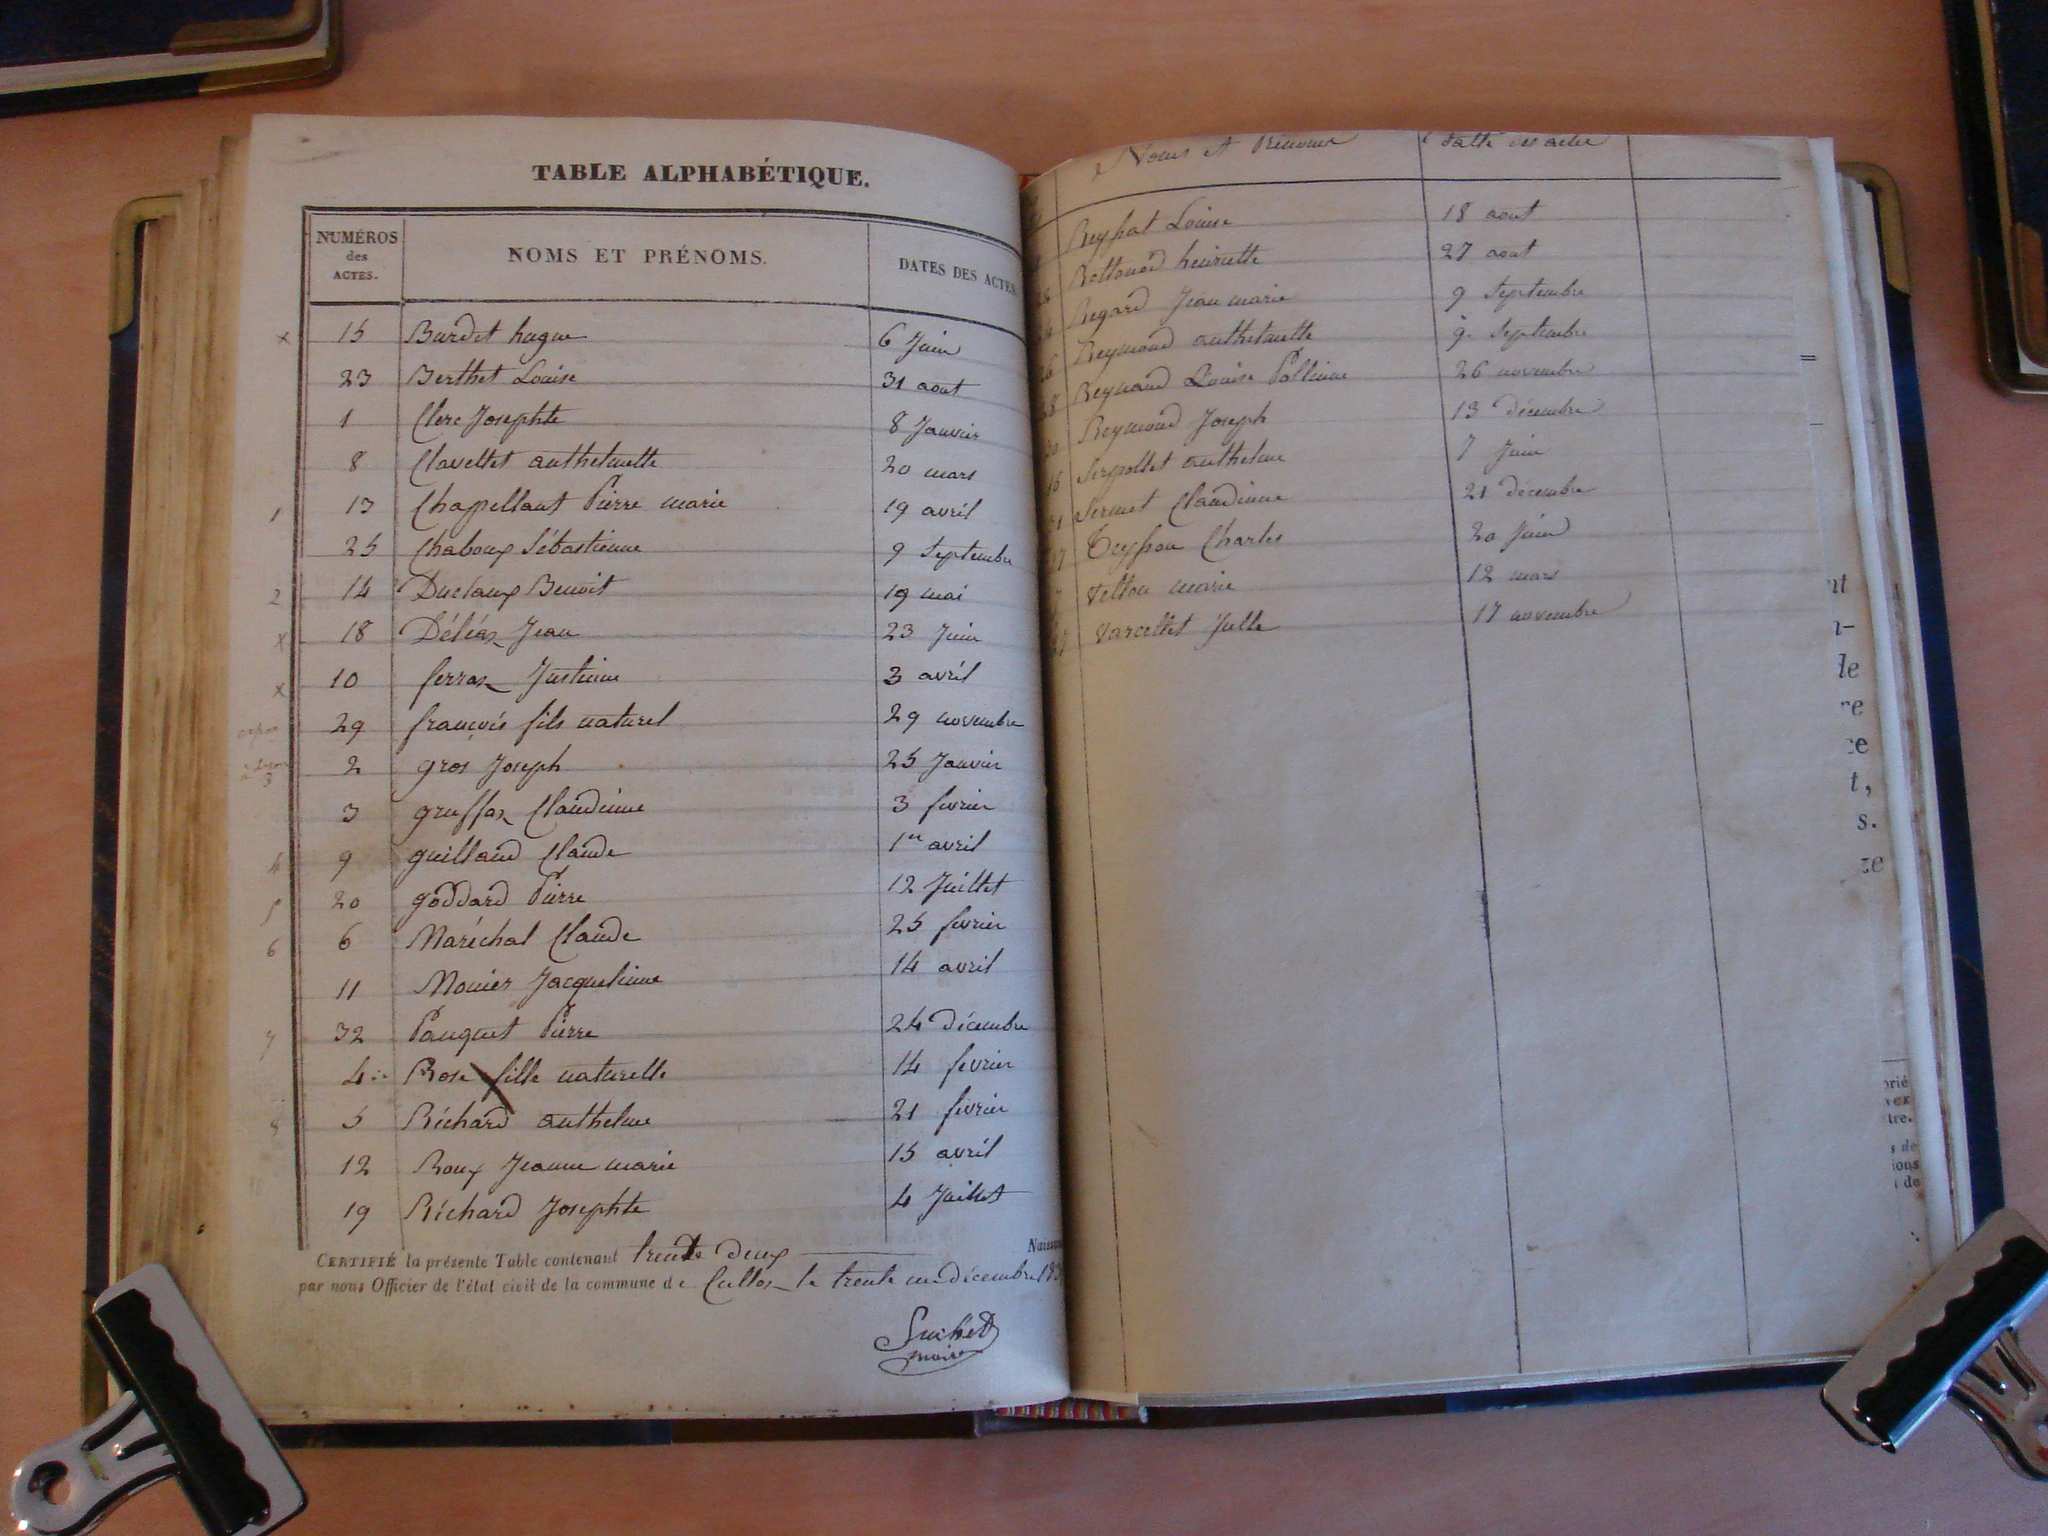 TABLE ALPHABÉTIQUE.
NUMÉROS des ACTES. NOMS ET PRÉNOMS. DATES DES ACTES
x 15 Burdet hugue 6 Juin
23 Berthet Louise 31 aout
1 Clerc Josephte 8 Janvier
8 Clavellet anthelmette 20 mars
1 13 Chapellant Pierre marie 19 avril
25 Chaboux Sébastienne 9 Septembre
2 14 Duclaux Benoit 19 mai
x 18 Déléaz Jean 23 Juin
x 10 ferraz Justinne 3 avril
29 françois fils naturel 29 novembre
3 2 gros Joseph 25 Janvier
3 gruffaz Claudinne 3 fevrier
4 9 guilland Claude 1er avril
5 20 goddard Pierre 12 Juillet
6 6 Maréchal Claude 25 fevrier
11 Monier Jacquelinne 14 avril
7 32 Pauquet Pierre 24 décembre
4 Rose fille naturelle 14 fevrier
8 5 Richard anthelme 21 fevrier
12 Roux Jeanne marie 15 avril
19 Richard Josephte 4 Juillet
CERTIFIÉ la présente Table contenant trente deux
par nous Officier de l'état civil de la commune de Culloz le trente un décembre 183
Suchet
maire
Noms et Prénoms Datte des actes
Reyssat Louise 18 aout
Rettouard henriette 27 aout
Regard Jean marie 9 Septembre
26 Reymond anthelmette 9 Septembre
28 Reynaud Louise Pollinne 26 novembre
30 Reymond Joseph 13 décembre
16 Serpollet anthelme 7 Juin
31 Sermet Claudinne 21 décembre
17 Teysson Charles 20 Juin
7 Vetton marie 12 mars
27 Varcellet Julle 17 novembre
nt
n-
le
re
ce
t,
s.
ze
prié
vex
tre.
s de
ions
de